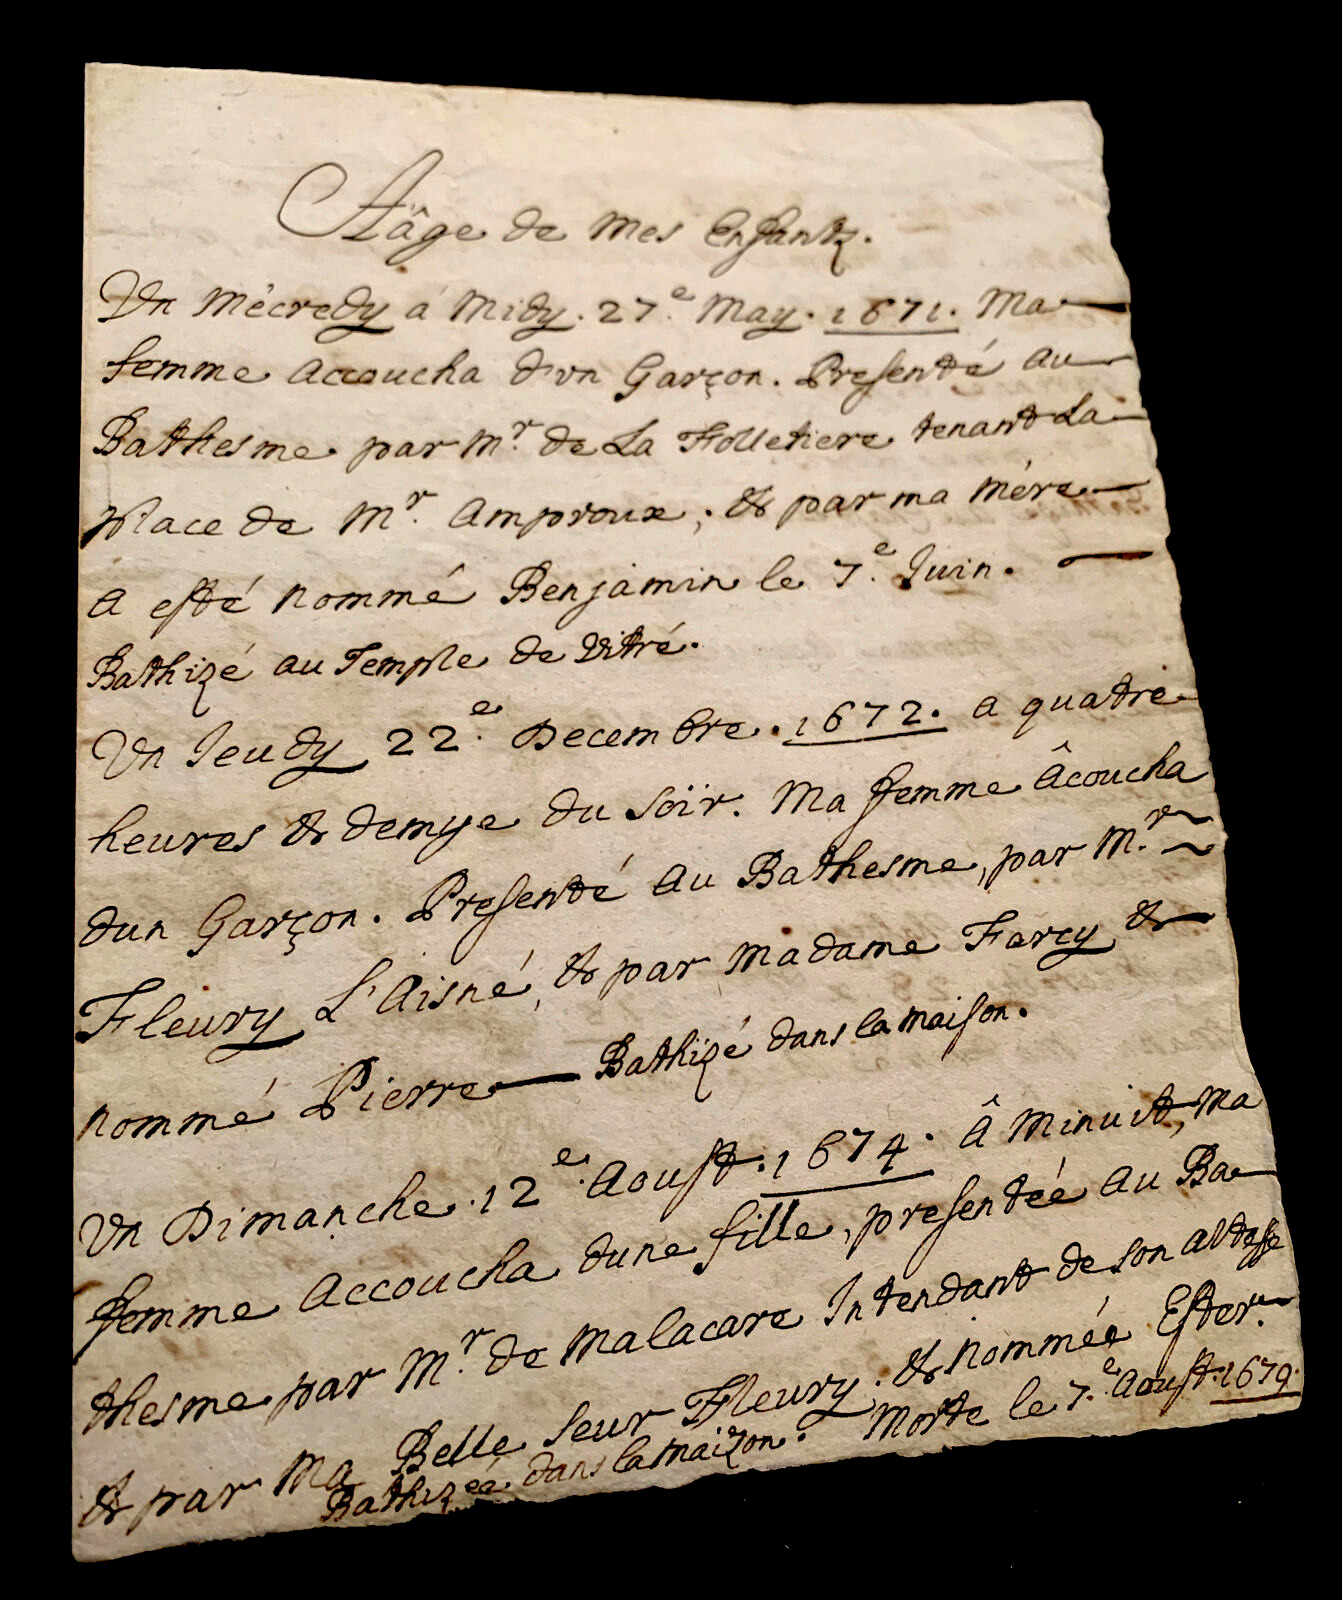 Aâge de mes Enfantz.
Vn Mécredy á Midy. 27.e May. 1671. Ma
femme accoucha d'vn Garçon. Presenté au
Bathesme par Mr. de La Folletiere tenant La
place de Mr. Amproux, & par ma mére
a esté nommé Benjamin le 7.e Juin.
Bathizé au Temple de Vitré.
Vn Jeudy 22.e Decembre. 1672. a quatre
heures & demye du soïr. Ma femme âcoucha
dun Garçon. Presenté au Bathesme, par Mr.
Fleury L'Aisné, & par Madame Farcy &
nommé Pierre Bathizé dans la maison.
Vn Dimanche. 12e. Aoust. 1674. â Minuit, Ma
femme accoucha dune fille, presentée au Ba
thesme par Mr. de Malacare Intendant de son altesse
& par Ma Belle seur Fleury, & nommée Ester.
Bathizeé dans la maizon. Morte le 7.e Aoust. 1679.